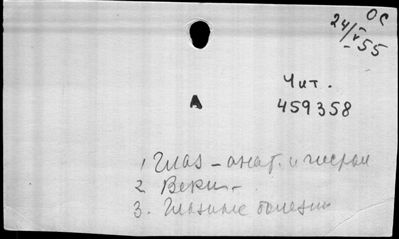 ОС
24/V 55
Чит.
А
459358
1 Глаз – анат. и
2 Веки –
3. Глазные болезни